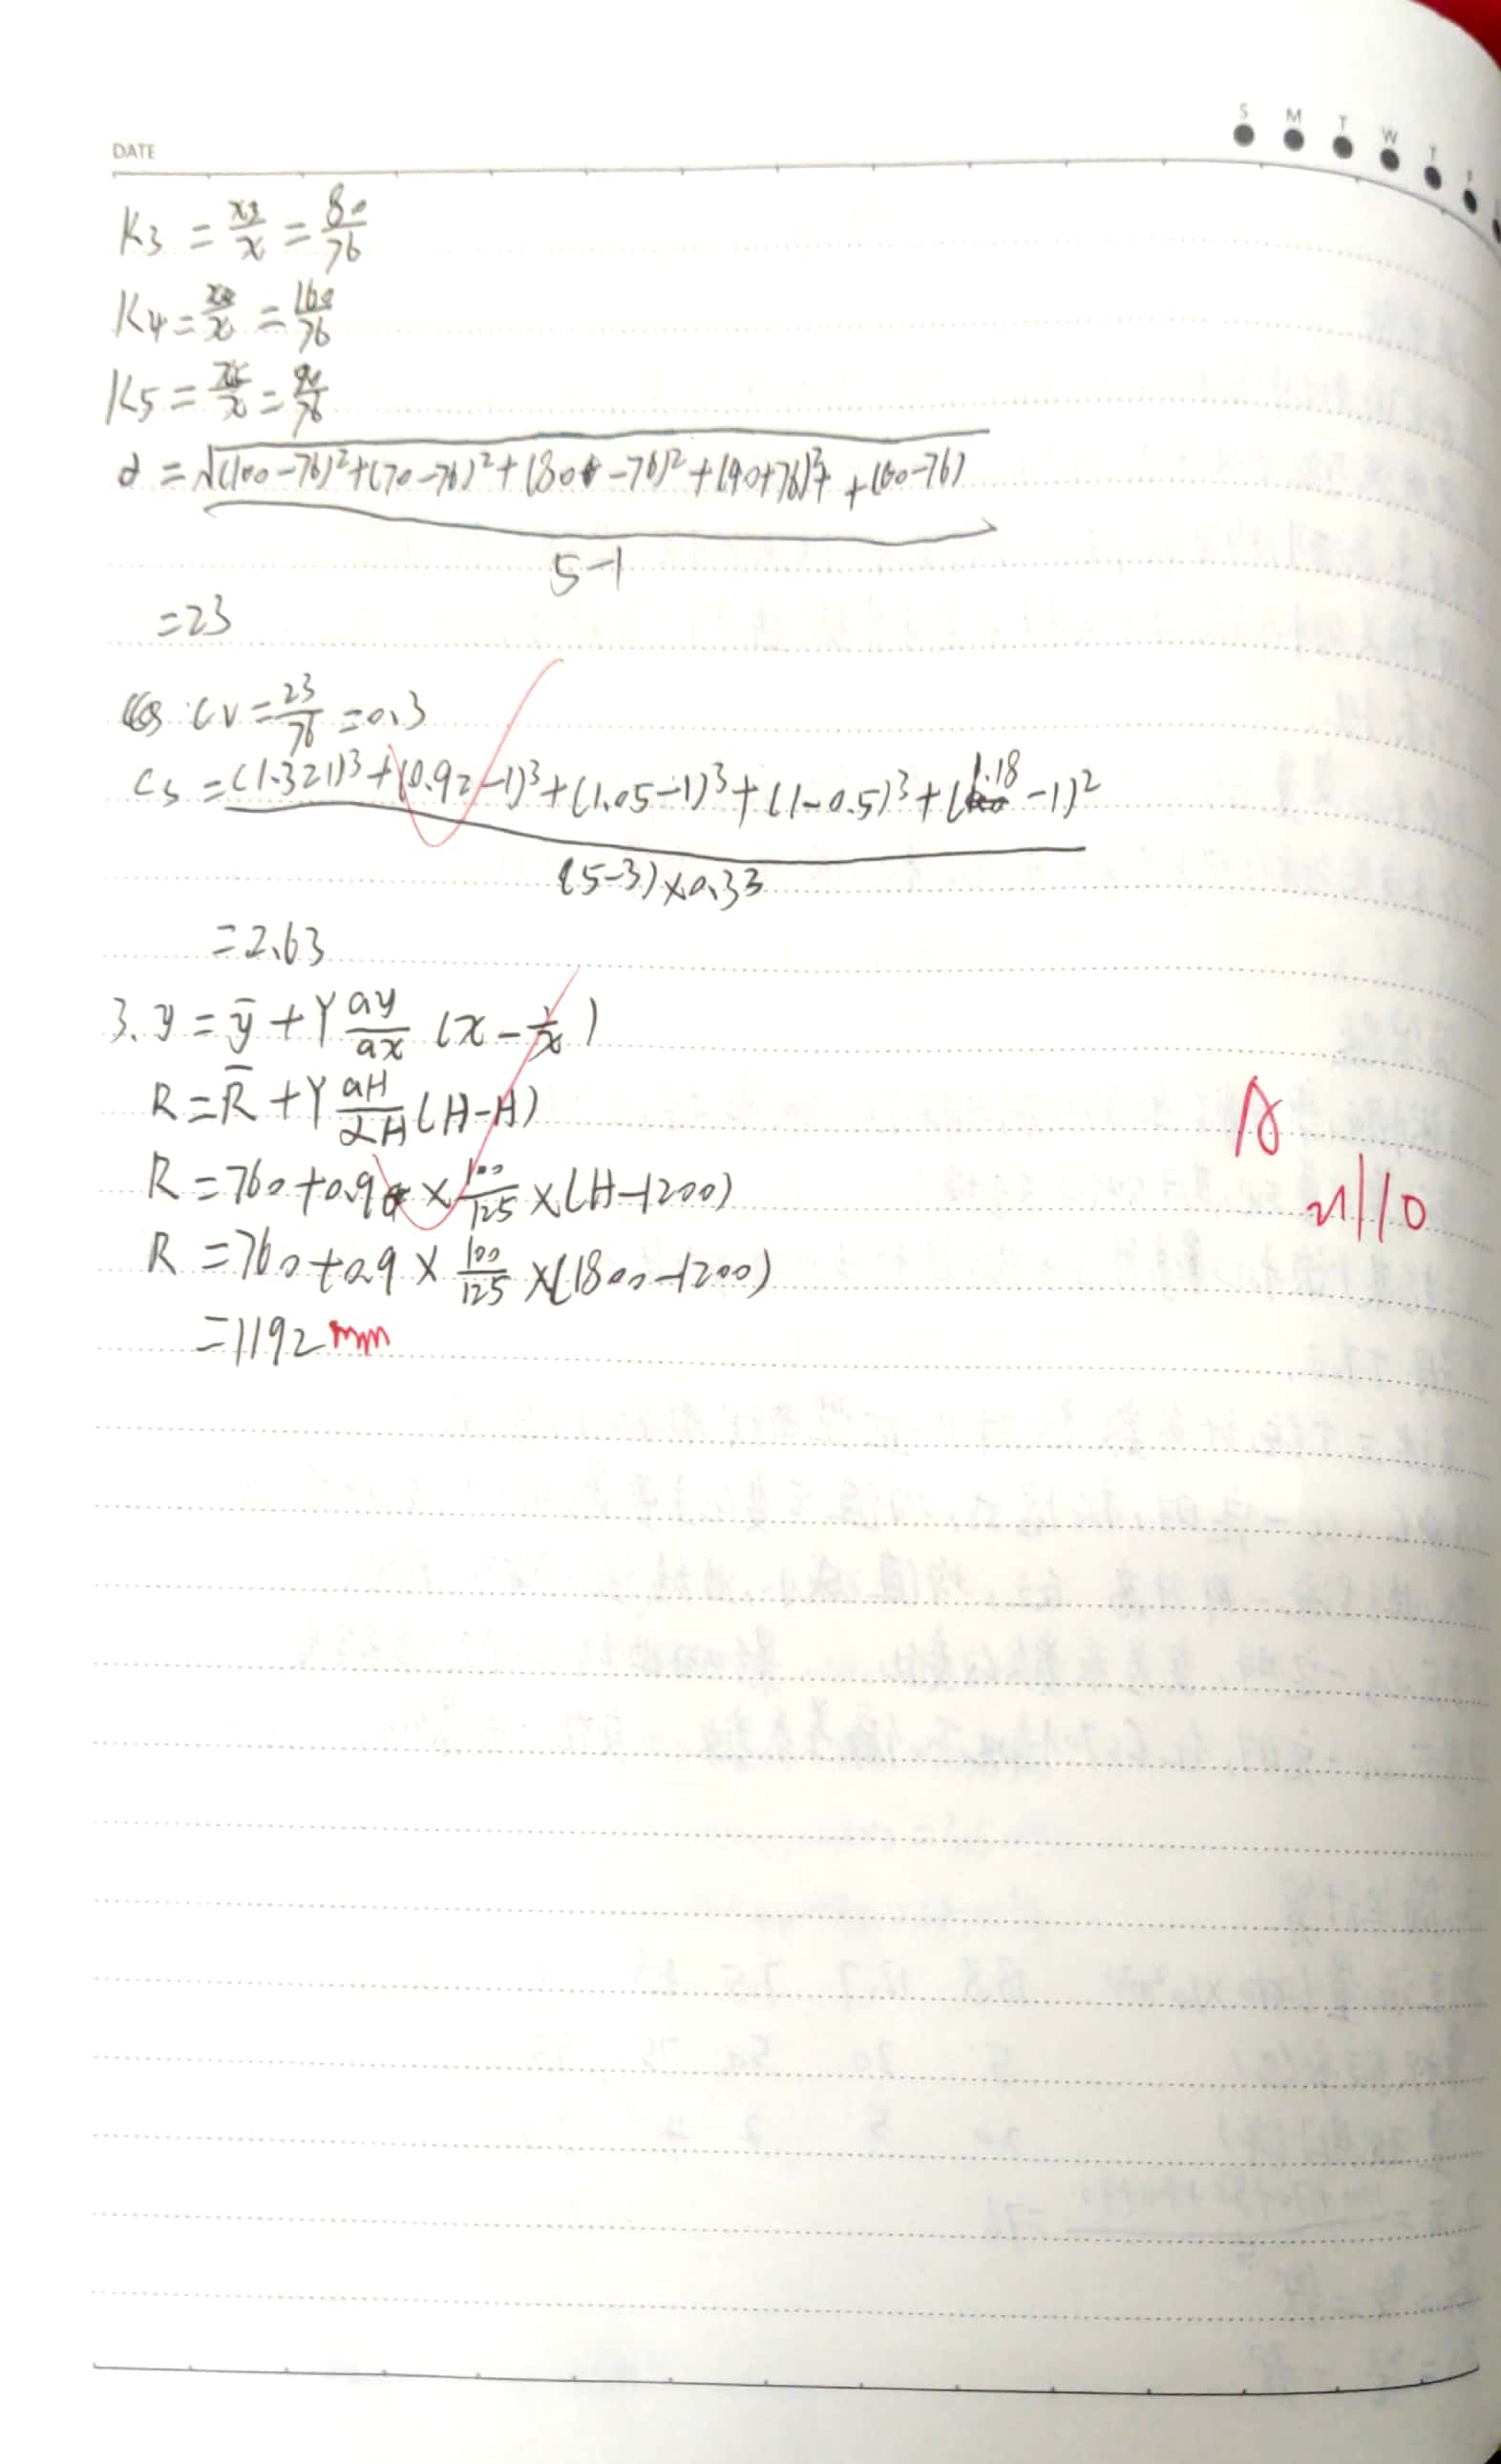 DATE
S M T W T F
K3 = x3/x = 80/76
K4 = /x = 160/76
K5 = /x = 90/76
d = √(100-76)²+(70-76)²+(80-76)²+(90+76)²+ +(60-76)
5-1
=23
CV = 23/76 = 0.3
Cs = (1.321)³+(0.92-1)³+(1.05-1)³+(1-0.5)³+(1.18-1)²
(5-3)×0.33
=2.63
3. y = ȳ + γ ay/ax (x - )
R = R̄ + γ aH/2H (H-H)
R = 760+0.9 × 100/125 ×(H-1200)
A
R = 760+0.9 × 100/125 ×(1800-1200)
=1192 mm